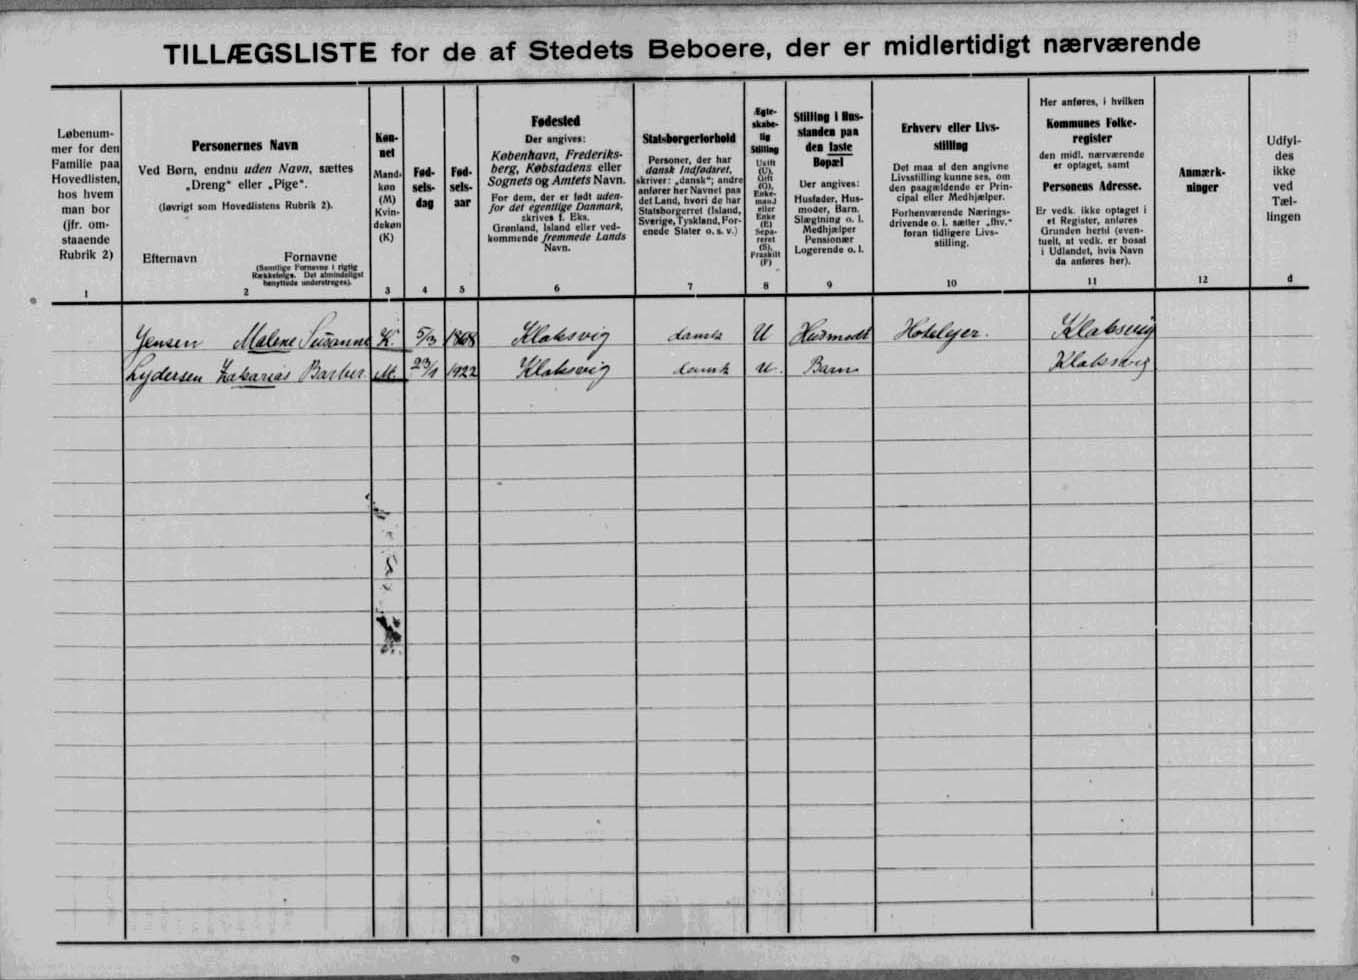 TILLÆGSLISTE for de af Stedets Beboere, der er midlertidigt nærværende
Løbenum-
mer for den
Familie paa
Hovedlisten,
hos hvem
man bor
(jfr. om-
staaende
Rubrik 2)
1
Personernes Navn
Ved Børn, endnu uden Navn, sættes
„Dreng“ eller „Pige“.
(Iøvrigt som Hovedlistens Rubrik 2).
Efternavn Fornavne
(Samtlige Fornavne i rigtig
Rækkefølge. Det almindeligst
benyttede understreges).
2
Køn-
net
Mand-
køn
(M)
Kvin-
dekøn
(K)
3
Fød-
sels-
dag
4
Fød-
sels-
aar
5
Fødested
Der angives:
København, Frederiks-
berg, Købstadens eller
Sognets og Amtets Navn.
For dem, der er født uden-
for det egentlige Danmark,
skrives f. Eks.
Grønland, Island eller ved-
kommende fremmede Lands
Navn.
6
Statsborgerforhold
Personer, der har
dansk Indfødsret,
skriver: „dansk“; andre
anfører her Navnet paa
det Land, hvori de har
Statsborgerret (Island,
Sverige, Tyskland, For-
enede Stater o. s. v.)
7
Ægte-
skabe-
lig
Stilling
Ugift
(U),
Gift
(G),
Enke-
mand
eller
Enke
(E)
Sepa-
reret
(S),
Fraskilt
(F)
8
Stilling i Hus-
standen paa
den faste
Bopæl
Der angives:
Husfader, Hus-
moder, Barn,
Slægtning o. l.
Medhjælper
Pensionær
Logerende o. l.
9
Erhverv eller Livs-
stilling
Det maa af den angivne
Livsstilling kunne ses, om
den paagældende er Prin-
cipal eller Medhjælper.
Forhenværende Nærings-
drivende o. l. sætter „fhv.“
foran tidligere Livs-
stilling.
10
Her anføres, i hvilken
Kommunes Folke-
register
den midl. nærværende
er optaget, samt
Personens Adresse.
Er vedk. ikke optaget i
et Register, anføres
Grunden hertil (even-
tuelt, at vedk. er bosat
i Udlandet, hvis Navn
da anføres her).
11
Anmærk-
ninger
12
Udfyl-
des
ikke
ved
Tæl-
lingen
d
Jensen Malene Susanne K. 5/3 1868 Klaksvig dansk U Husmodr Hotelejer. Klaksvig
Lydersen Zakarias Barber M. 23/1 1922 Klaksvig dansk U. Barn Klaksvig